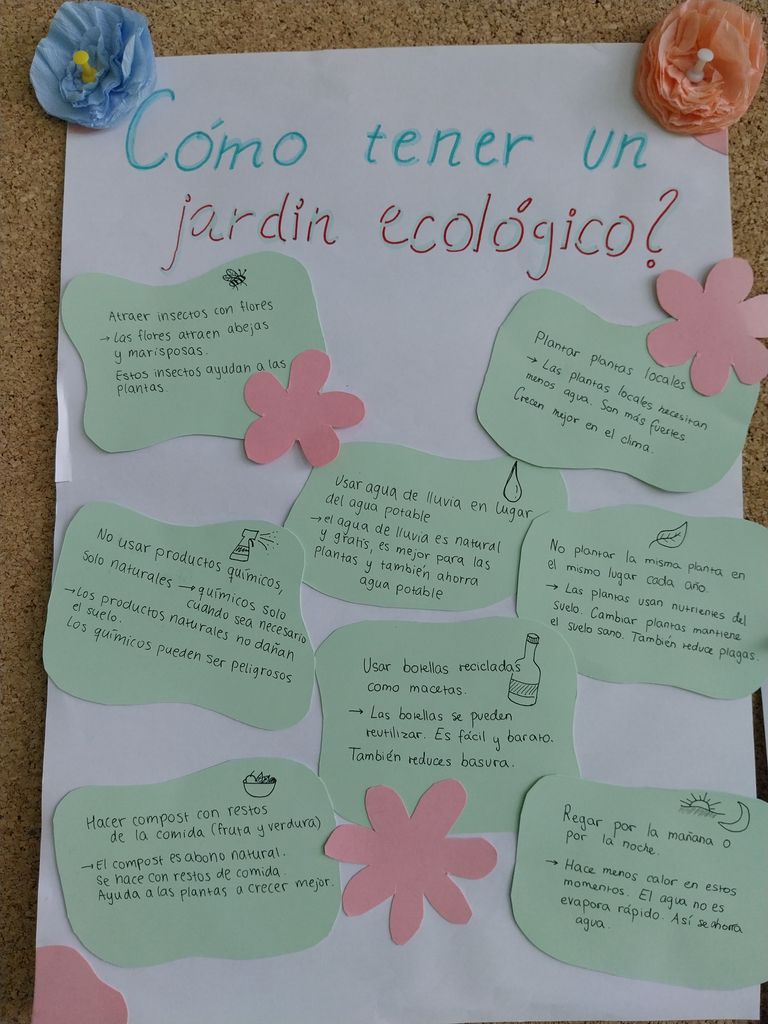 Cómo tener un
jardín ecológico?
Atraer insectos con flores
→ Las flores atraen abejas
y mariposas.
Estos insectos ayudan a las
plantas.
Plantar plantas locales
→ Las plantas locales necesitan
menos agua. Son más fuertes
Crecen mejor en el clima.
Usar agua de lluvia en lugar
del agua potable
→ el agua de lluvia es natural
y gratis, es mejor para las
plantas y también ahorra
agua potable
No usar productos químicos,
solo naturales → químicos solo
cuando sea necesario
→ Los productos naturales no dañan
el suelo.
Los químicos pueden ser peligrosos
No plantar la misma planta en
el mismo lugar cada año.
→ Las plantas usan nutrientes del
suelo. Cambiar plantas mantiene
el suelo sano. También reduce plagas.
Usar botellas recicladas
como macetas.
→ Las botellas se pueden
reutilizar. Es fácil y barato.
También reduces basura.
Hacer compost con restos
de la comida (fruta y verdura)
→ El compost es abono natural.
Se hace con restos de comida.
Ayuda a las plantas a crecer mejor.
Regar por la mañana o
por la noche.
→ Hace menos calor en estos
momentos. El agua no es
evapora rápido. Así se ahorra
agua.